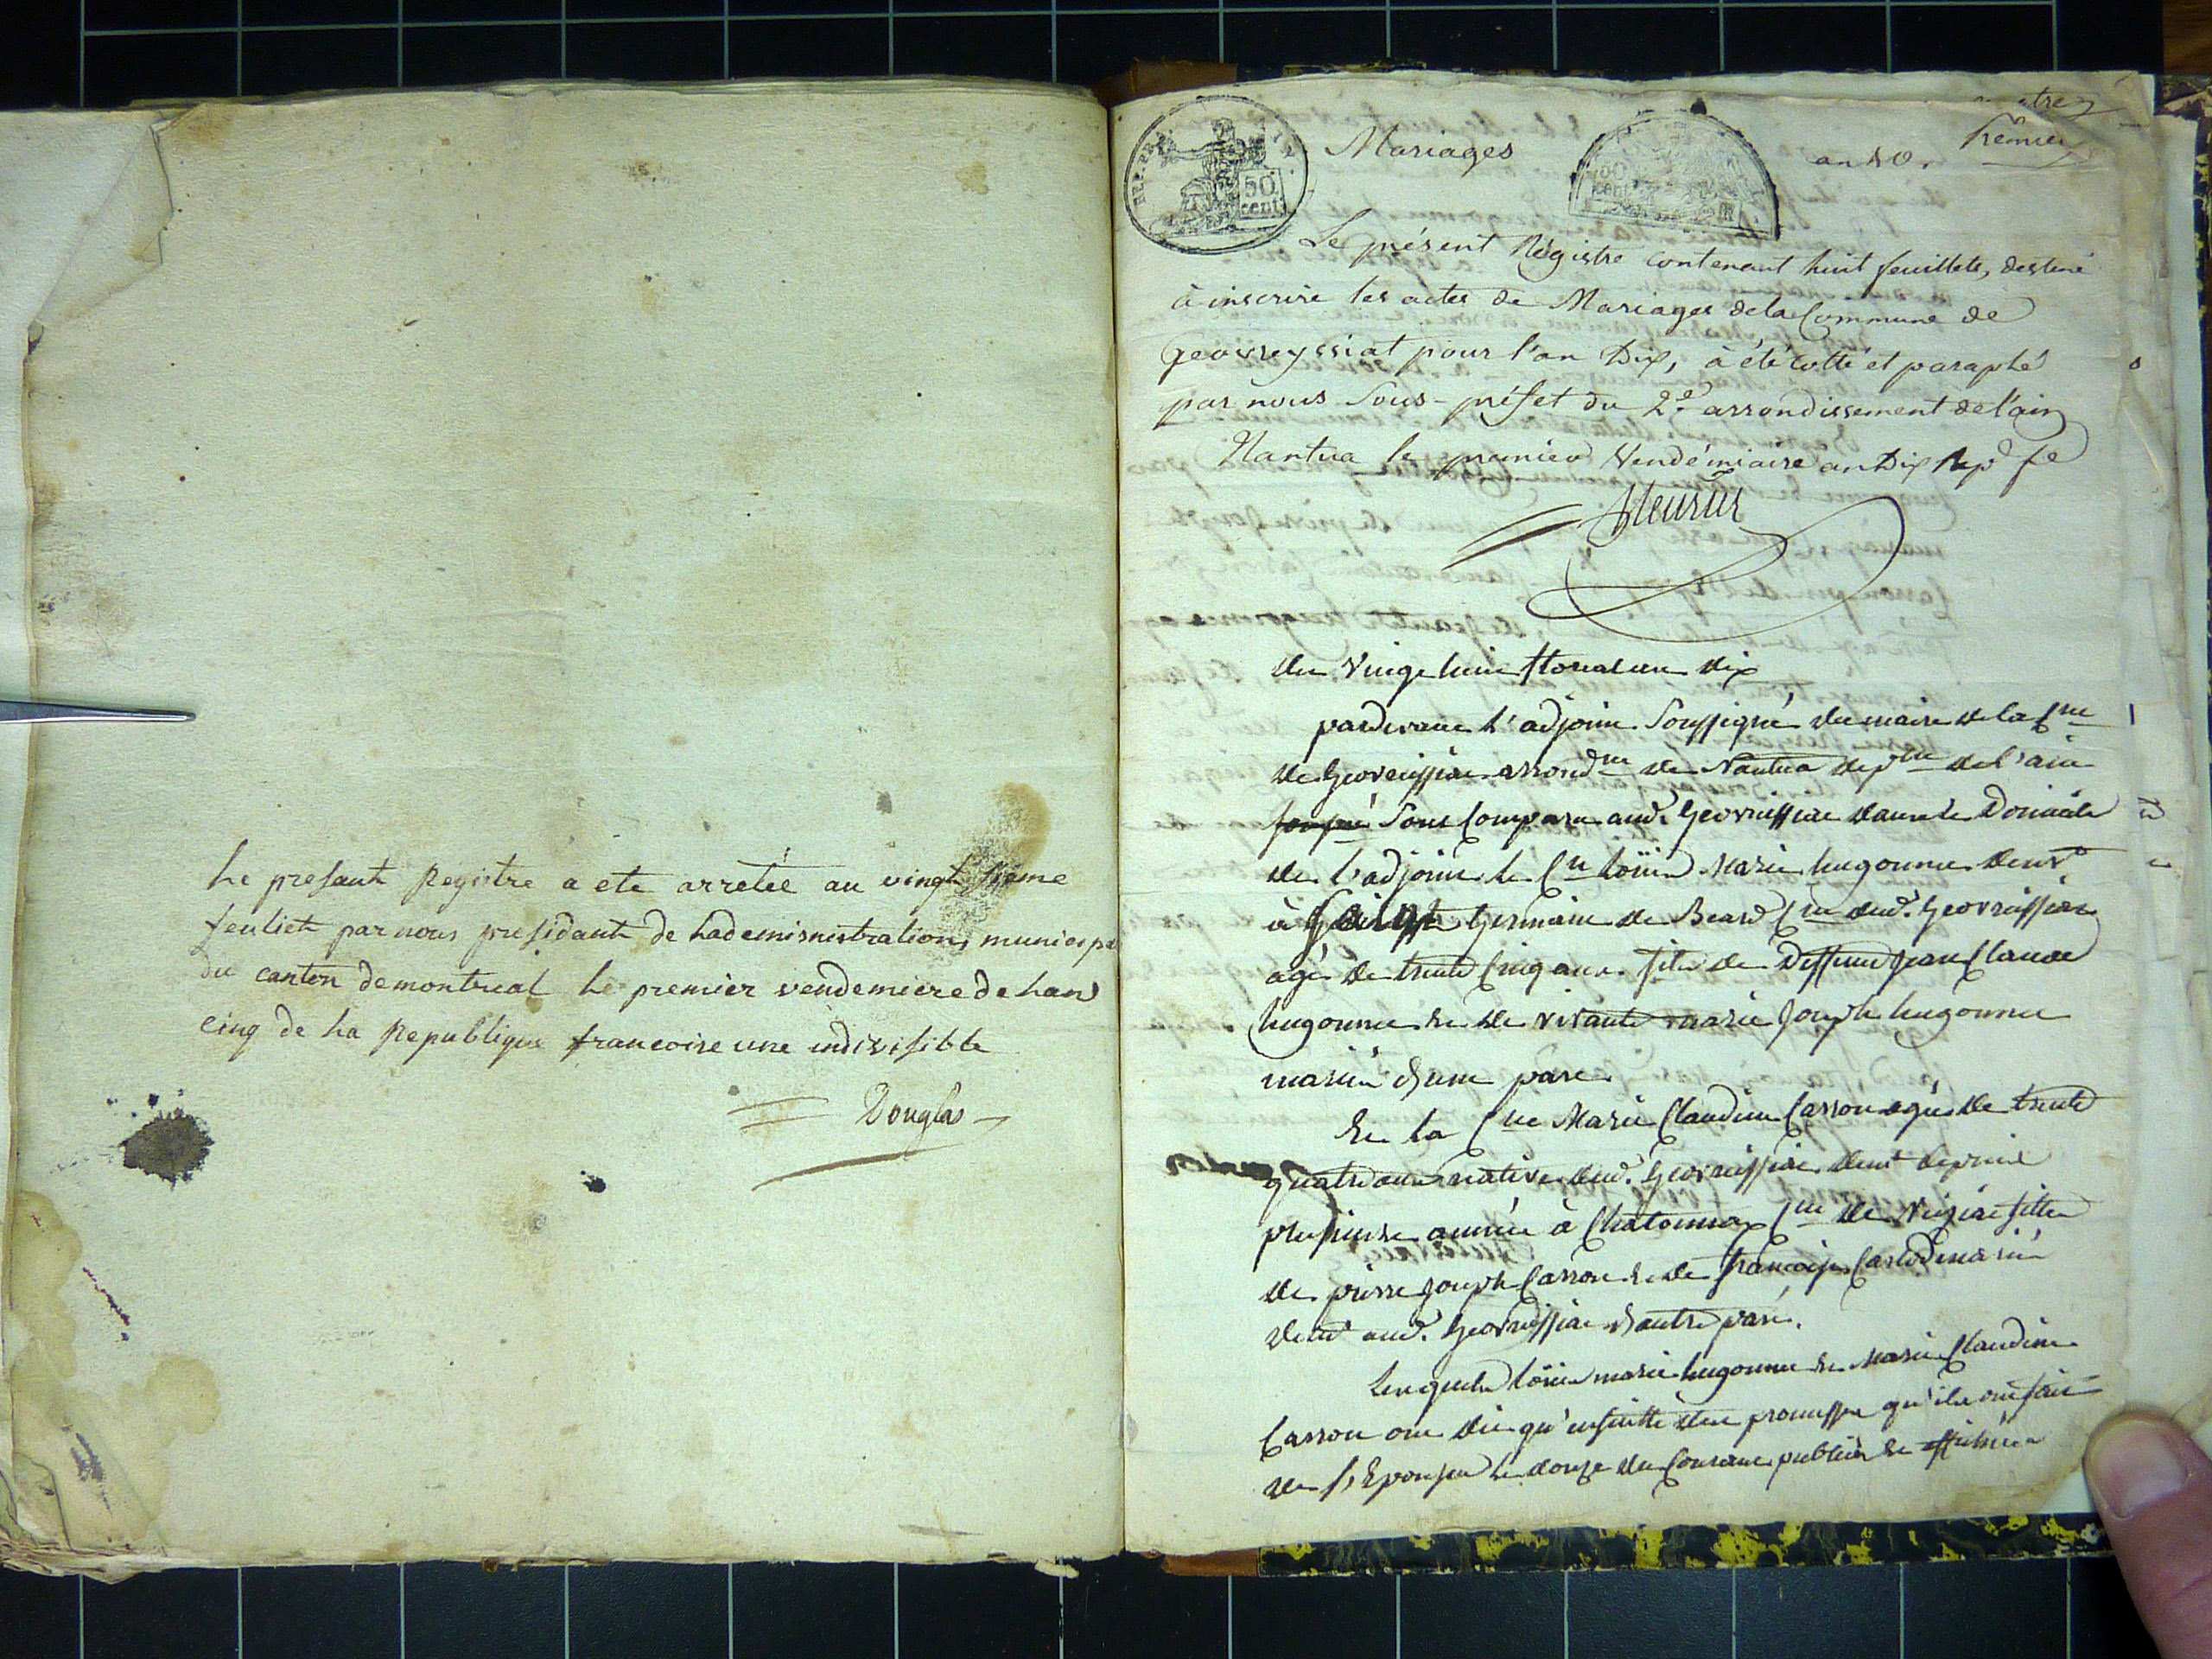 Le presant Registre a ete arretée au vingt sieme
feuliet par nous presidant de Lademisnistration municipa
du canton de montreal Le premier vendemiere de Lan
cinq de La Republique francoise une indivisible
Douglas
Mariages
an 10.
Premier
REP. FRA
50. cent.
Le présent Régistre contenant huit feuillets, destiné
à inscrire les actes de Mariages de la Commune de
geovreyssiat pour l'an Dix, à été cotté et paraphé
par nous Sous-préfet du 2e. arrondissement de l'ain
Nantua le premier Vendémiaire an Dix Rep.e fe
du Vingt huit floreal an dix
pardevant L'adjoint Soussigné du maire de la Cne
de Geovreissiat arrondmt de Nantua depmt de l'ain
Sont Comparu aud. Geovreissiat dans le Domicile
de L'adjoint le Cen Loüis Marie hugonnet demt
à Saint Germain de Beard Cne dud. Geovreissiat
agé de trente Cinq ans fils de Deffunt Jean Claude
hugonnet et de vivante marie Joseph hugonnet
mariés d'une part
Et la Cne Marie Claudine Carron agée de trente
quatre ans native dud. Geovreissiat demt depuis
plusieurs années à Chatonnax Cne de Veiziat fille
de pierre Joseph Carron et de françoise mariés
demt aud. Geovreissiat d'autre part.
Lesquels Loüis marie hugonnet et Marie Claudine
Carron ont dit qu'ensuitte des promesses qu'ils ont fait
de s'Epouser le douze du Courant publiés et affichés